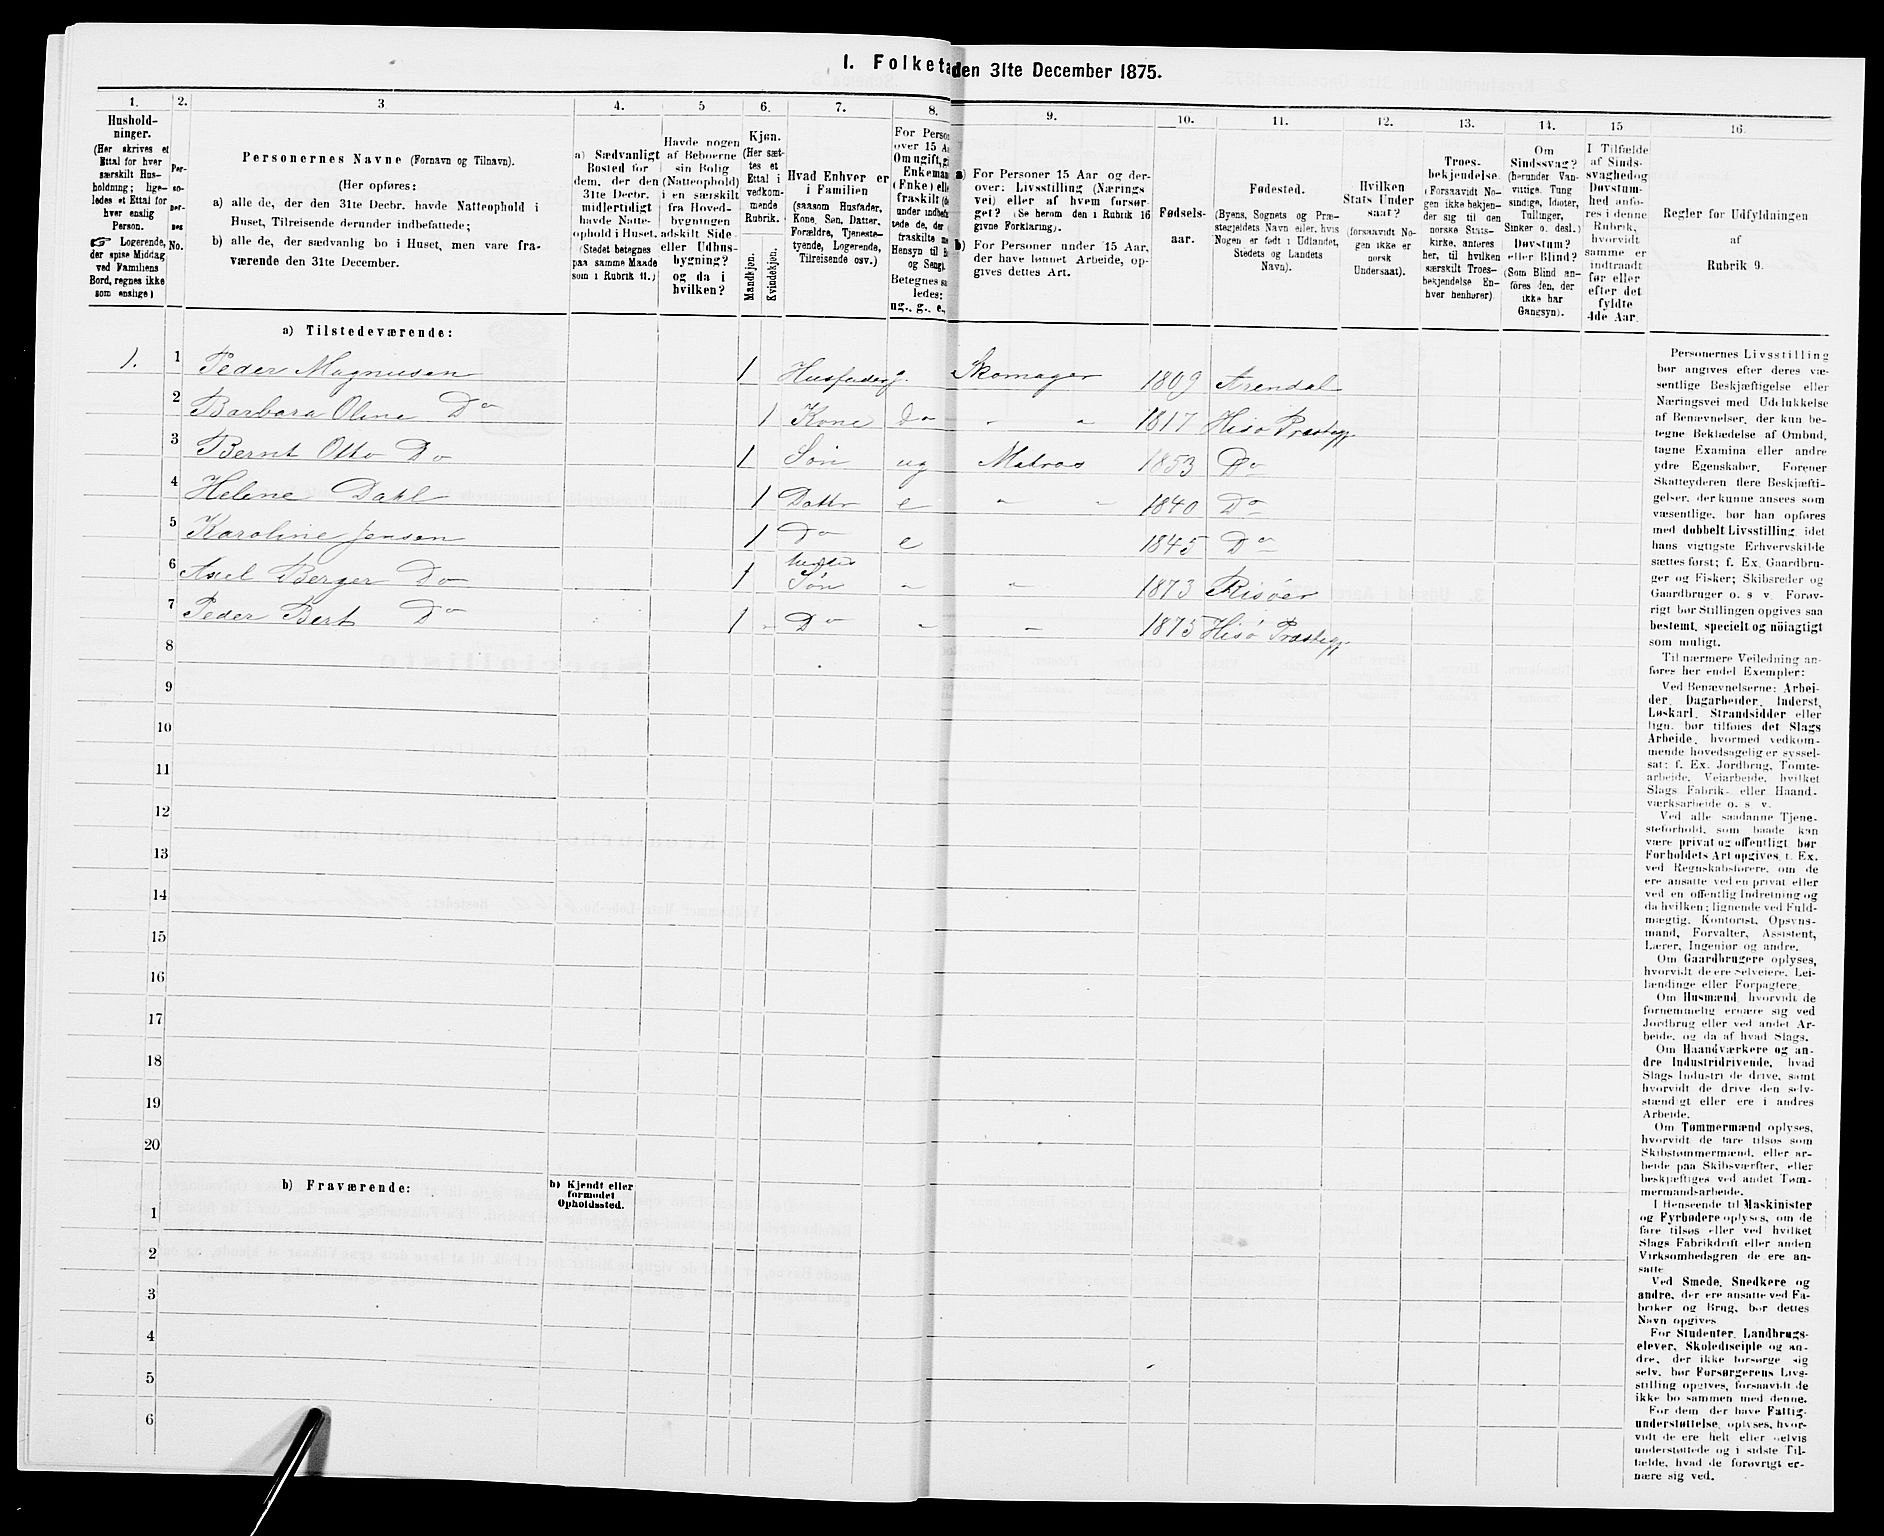 I. Folketæ
den 31te December 1875.
1.
2.
3
4.
5
6.
7.
8.
9.
10.
11.
12.
13.
14.
15
16.
Hushold-
ninger.
(Her skrives et
Ettal for hver
særskilt Hus-
holdning; lige-
ledes et Ettal for
hver enslig
Person.
☞ Logerende,
der spise Middag
ved Familiens
Bord, regnes ikke
som enslige)
Per-
so-
ner-
nes
No.
Personernes Navne (Fornavn og Tilnavn).
(Her opføres:
a) alle de, der den 31te Decbr. havde Natteophold i
Huset, Tilreisende derunder indbefattede;
b) alle de, der sædvanlig bo i Huset, men vare fra-
værende den 31te December.
a) Sædvanligt
Bosted for
dem, der den
31te Decbr.
midlertidigt
havde Natte-
ophold i Huset.
(Stedet betegnes
paa samme Maade
som i Rubrik 11.)
Havde nogen
af Beboerne
sin Bolig
(Natteophold)
i en særskilt
fra Hoved-
bygningen
adskilt Side-
eller Udhus-
bygning?
og da i
hvilken?
Kjøn.
(Her sæt-
tes et
Ettal i
vedkom-
mende
Rubrik.
Mandkjøn.
Kvindekjøn.
Hvad Enhver er
i Familien
(saasom Husfader,
Kone, Søn, Datter,
Forældre, Tjeneste-
tyende, Logerende,
Tilreisende osv.)
For Perso
over 15 A
Om ugift, g
Enkeman
(Enke) ell
fraskilt (
under indbef
tede de, der
fraskilte m
Hensyn til B
og Seng).
Betegnes sa
ledes:
ug., g., e.,
a) For Personer 15 Aar og der-
over: Livsstilling (Nærings
vei) eller af hvem forsør-
get? (Se herom den i Rubrik 16
givne Forklaring).
b) For Personer under 15 Aar,
der have lønnet Arbeide, op-
gives dettes Art.
Fødsels-
aar.
Fødested.
(Byens, Sognets og Præ-
stegjeldets Navn eller, hvis
Nogen er født i Udlandet,
Stedets og Landets
Navn).
Hvilken
Stats Under
saat?
(forsaavidt No-
gen ikke er
norsk
Undersaat).
Troes-
bekjendelse.
(Forsaavidt No-
gen ikke bekjen-
der sig til den
norske Stats-
kirke, anføres
her, til hvilken
særskilt Troes-
bekjendelse En-
hver henhører)
Om
Sindssvag?
(herunder Van-
vittige, Tung
sindige, Idioter,
Tullinger,
Sinker o. desl.)
Døvstum?
eller Blind?
(Som Blind an-
føres den, der
ikke har
Gangsyn).
I Tilfælde
af Sinds-
svaghed og
Døvstum-
hed anfø-
res i denne
Rubrik,
hvorvidt
samme er
indtraadt
før eller
efter det
fyldte
4de Aar.
Regler for Udfyldningen
af
Rubrik 9.
a) Tilstedeværende:
1. 1 Peder Magnusen 1 Husfader g. Skomager 1809 Arendal
2 Barbara Oline Do 1 Kone Do " " 1817 Hisø Præstegj.
3 Bernt Otto Do 1 Søn ug Matros 1853 Do
4 Helene Dahl 1 Dattr e " " 1840 Do
5 Karoline Jensen 1 Do e 1845 Do
6 Axel Berger Do 1 Søn " " 1873 Risøer
7 Peder Bert Do 1 Do " " 1875 Hisø Præstegj.
8
9
10
11
12
13
14
15
16
17
18
19
20
b) Fraværende:
b) Kjendt eller
formodet
Opholdssted.
1
2
3
4
5
6
Personernes Livsstilling
bør angives efter deres væ-
sentlige Beskjæftigelse eller
Næringsvei med Udelukkelse
af Benævnelser, der kun be-
tegne Beklædelse af Ombud,
tagne Examina eller andre
ydre Egenskaber. Forener
Skatteyderen flere Beskjæfti-
gelser, der kunne ansees som
væsentlige, bør han opføres
med dobbelt Livsstilling, idet
hans vigtigste Erhvervskilde
sættes først; f. Ex. Gaardbru-
ger og Fisker; Skibsreder og
Gaardbruger o. s. v. Forøv-
rigt bør Stillingen opgives saa
bestemt, specielt og nøiagtigt
som muligt.
Til nærmere Veiledning an-
føres her endel Exempler:
Ved Benævnelserne: Arbei-
der, Dagarbeider, Inderst,
Løskarl, Strandsidder eller
lign. bør tilføies det Slags
Arbeide, hvormed vedkom-
mende hovedsagelig er syssel-
sat; f. Ex. Jordbrug, Tomte-
arbeide, Veiarbeide, hvilket
Slags Fabrik- eller Haand-
værksarbeide o. s v.
Ved alle saadanne Tjene-
steforhold, som baade kan
være privat og offentligt, bør
Forholdets Art opgives, t. Ex.
ved Regnskabsførere, om de
ere ansatte ved en privat eller
ved en offentlig Indretning og
da hvilken; lignende ved Fuld-
mægtig, Kontorist, Opsyns-
mand, Forvalter, Assistent,
Lærer, Ingeniør og andre.
Om Gaardbrugere oplyses,
hvorvidt de ere Selveiere, Lei-
lændinge eller Forpagtere.
Om Husmænd, hvorvidt de
fornemmelig ernære sig ved
Jordbrug eller ved andet Ar-
beide, og da af hvad Slags.
Om Haandværkere og an-
dre Industridrivende, hvad
Slags Industri de drive, samt
hvorvidt de drive den selv-
stændigt eller ere i andres
Arbeide.
Om Tømmermænd oplyses,
hvorvidt de fare tilsøs som
Skibstømmermænd, eller ar-
beide paa Skibsværfter, eller
beskjæftiges ved andet Tøm-
mermandsarbeide.
I Henseende til Maskinister
og Fyrbødere oplyses, om de
fare tilsøs eller ved hvilket
Slags Fabrikdrift eller anden
Virksomhedsgren de ere an-
satte
Ved Smede, Snedkere og
andre, der ere ansatte ved Fa-
briker og Brug, bør dettes
Navn opgives
For Studenter, Landbrugs-
elever, Skoledisciple og an-
dre, der ikke forsørge sig
selv, bør Forsørgerens Livs-
stilling opgives, forsaavidt de
ikke bo sammen med denne.
For dem, der have Fattig-
understøttelse, oplyses, hvor-
vidt de ere helt eller delvis
understøttede og i sidste Til-
fælde, hvad de forøvrigt er-
nære sig ved.